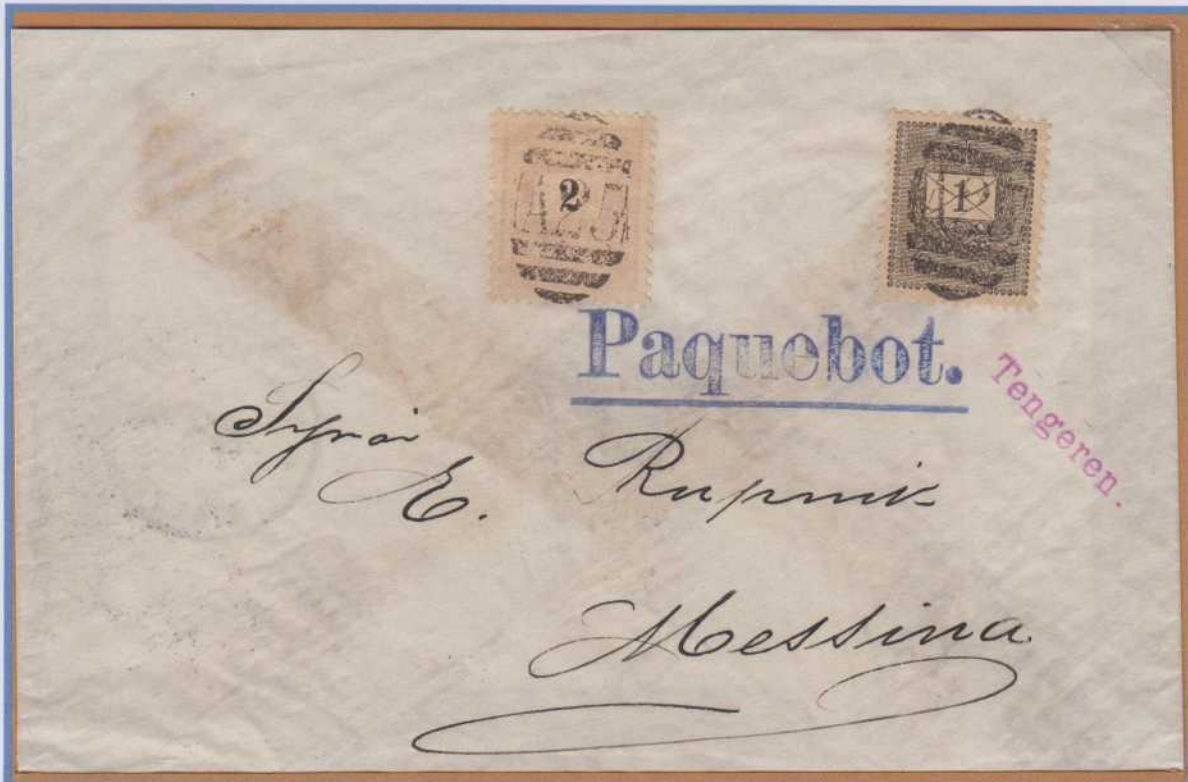 2 1
A25
Paquebot.
Tengeren.
Signor
E. Rupnik
Messina